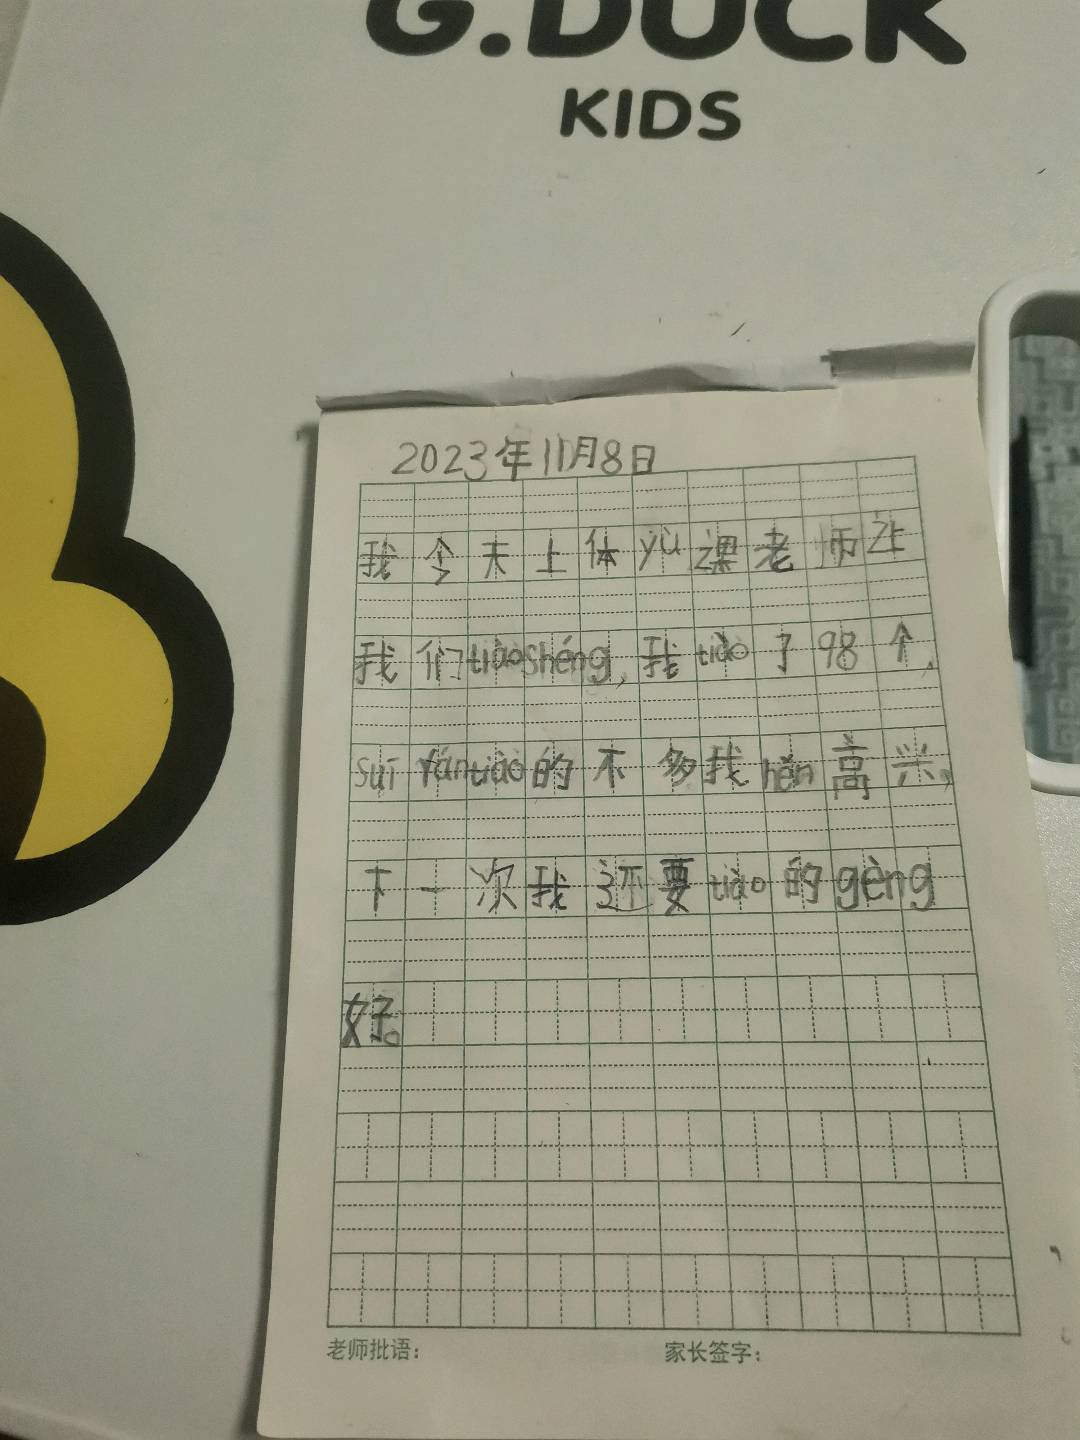 G.DUCK
KIDS
2023年11月8日
我今天上体yù课老师让
我们tiàoshéng,我tiào了98个,
suī rán tiào的不多我hěn高兴,
下一次我还要tiào的gèng
好。
老师批语:
家长签字: